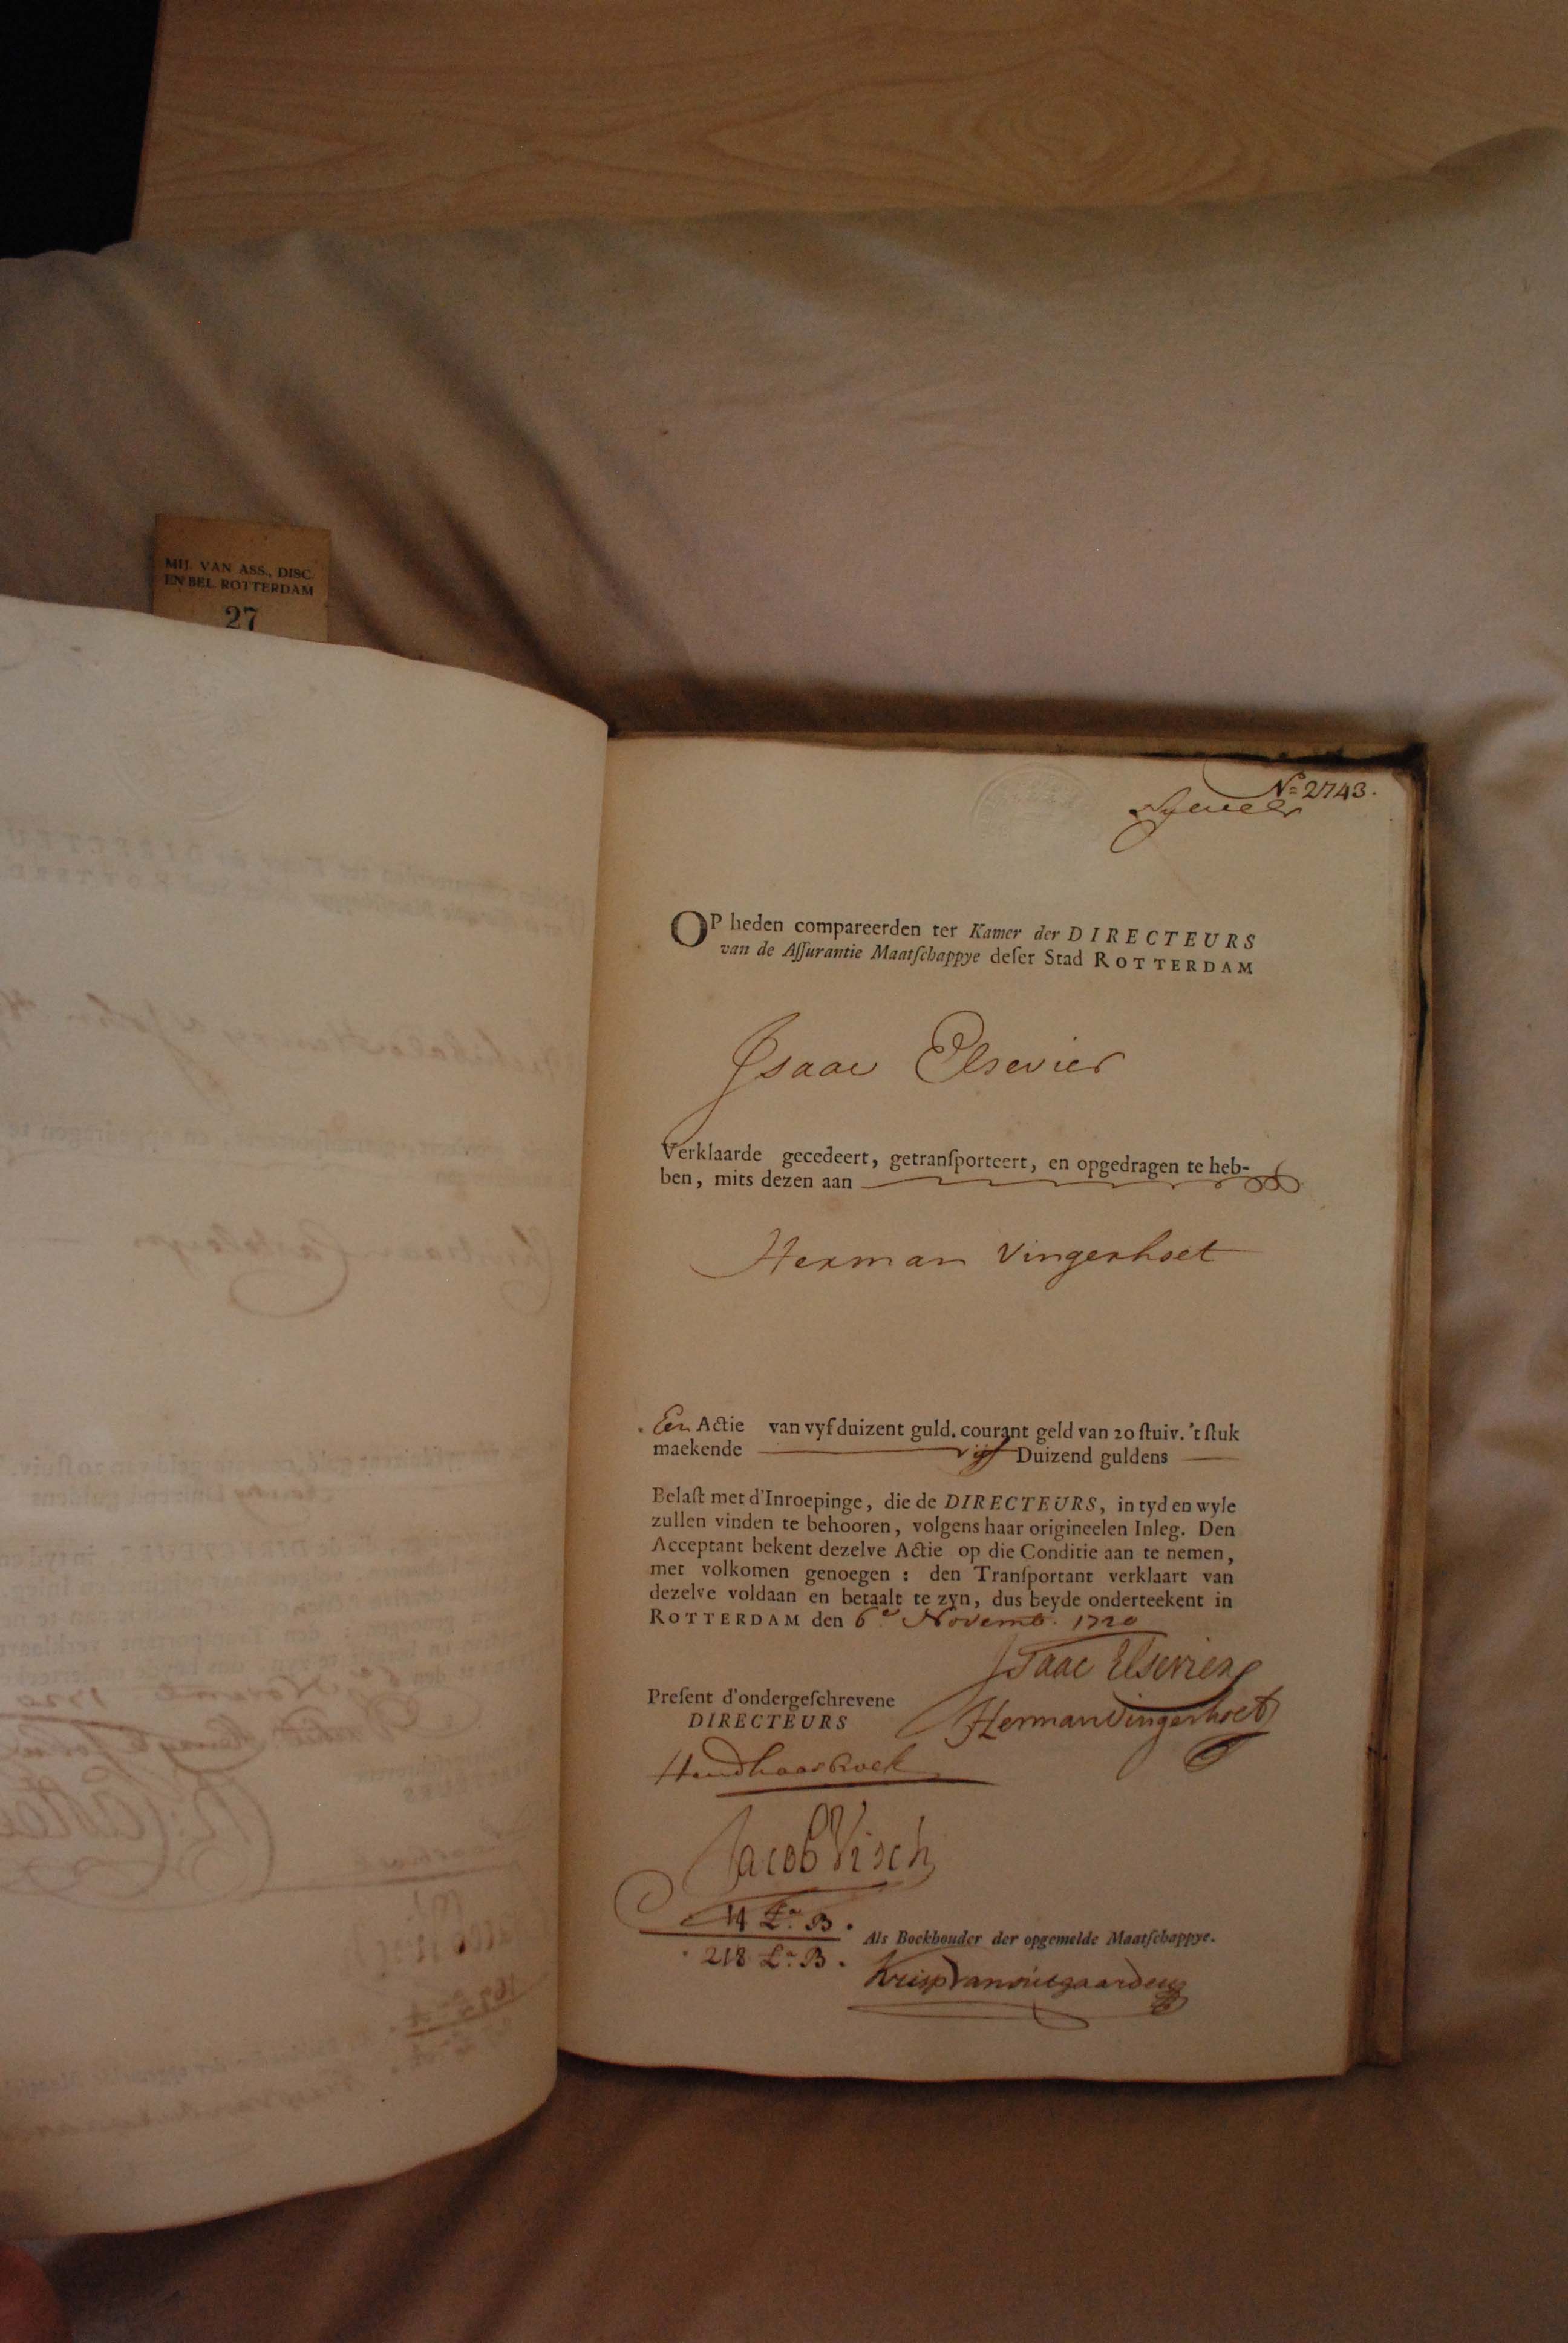 MIJ. VAN ASS., DISC.
EN BEL. ROTTERDAM
27
No 2743.
OP heden compareerden ter Kamer der DIRECTEURS
van de Aſſurantie Maatſchappye deſer Stad ROTTERDAM
Isaac Elsevier
Verklaarde gecedeert, getranſporteert, en opgedragen te heb-
ben, mits dezen aan
Herman Vingerhoet
Een Actie van vyf duizent guld. courant geld van 20 ſtuiv. 't ſtuk
maekende vijf Duizend guldens
Belaſt met d'Inroepinge, die de DIRECTEURS, in tyd en wyle
zullen vinden te behooren, volgens haar origineelen Inleg. Den
Acceptant bekent dezelve Actie op die Conditie aan te nemen,
met volkomen genoegen : den Tranſportant verklaart van
dezelve voldaan en betaalt te zyn, dus beyde onderteekent in
ROTTERDAM den 6e Novemb. 1720
Isaac Elsevier
Preſent d'ondergeſchrevene
DIRECTEURS
Herman Vingerhoet
Jacob Visch
14 La. B.
218 La. B.
Als Boekhouder der opgemelde Maatſchappye.